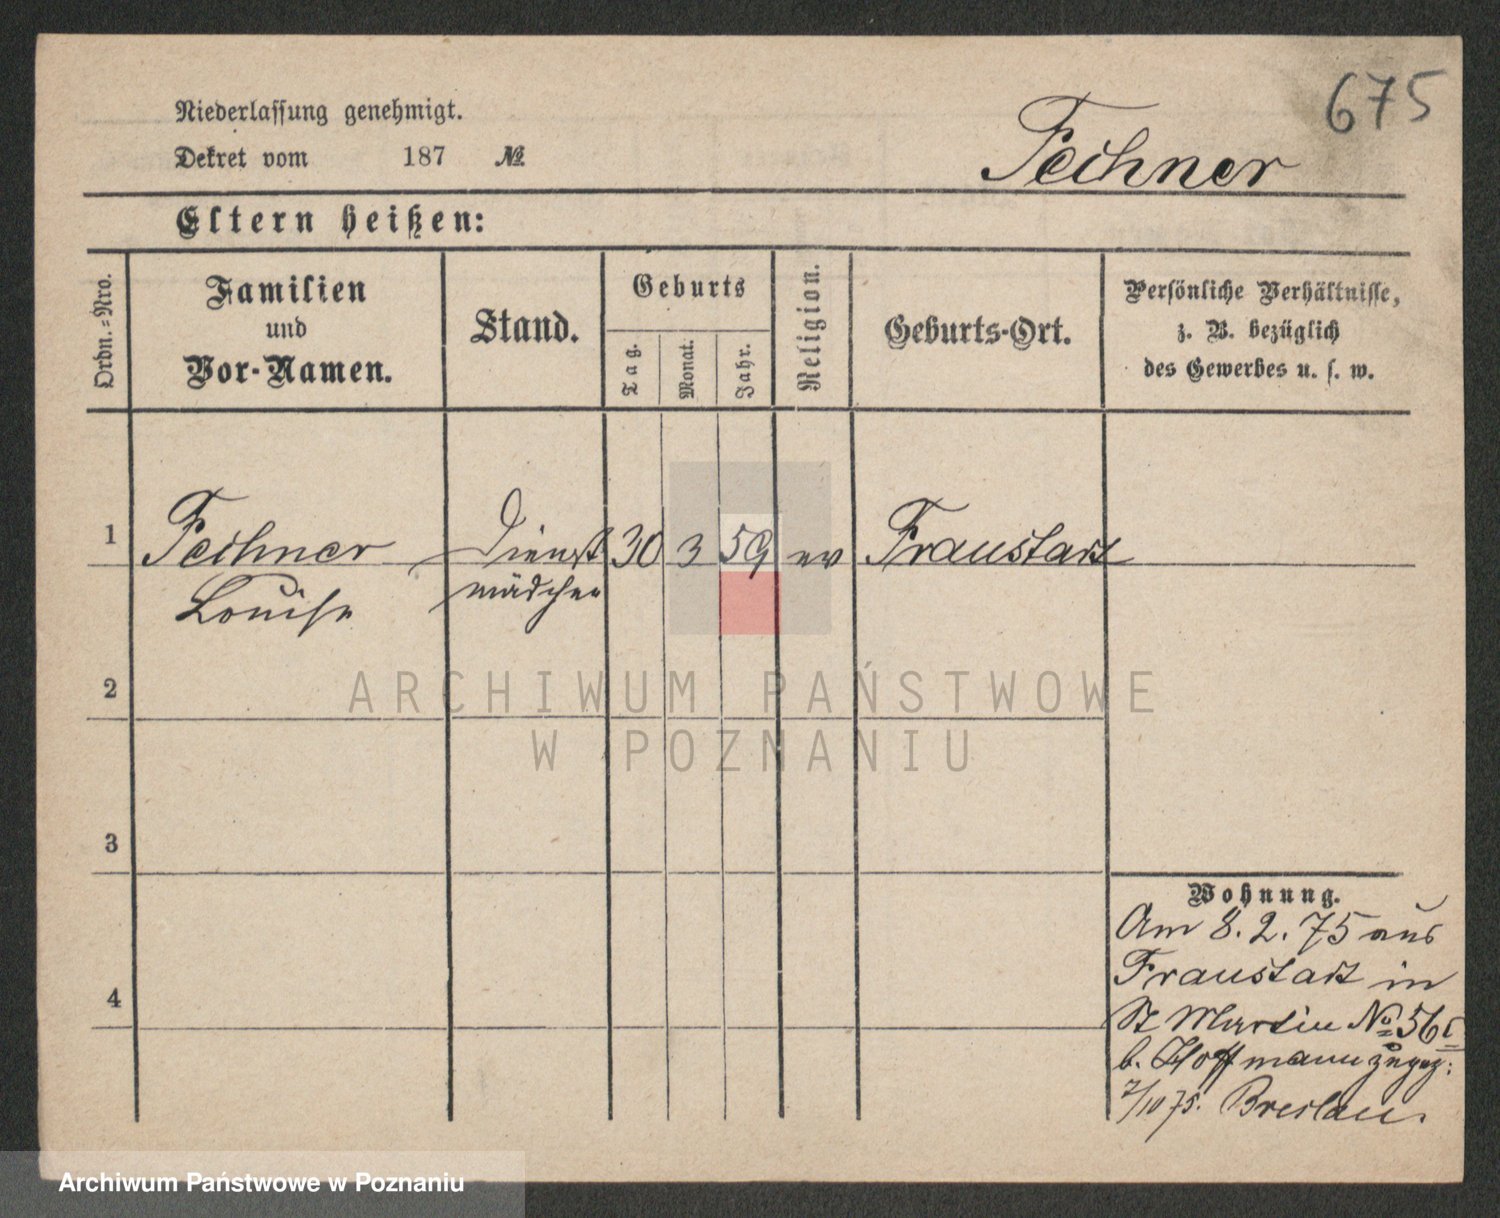 675
Niederlassung genehmigt.
Dekret vom 187 №
Fechner
Eltern heißen:
Ordn.-Nro.
Familien
und
Vor-Namen.
Stand.
Geburts
Tag.
Monat.
Jahr.
Religion.
Geburts-Ort.
Persönliche Verhältnisse,
z. B. bezüglich
des Gewerbes u. s. w.
1 Fechner Dienst 30 3 59 ev Fraustadt
Louise mädchen
ARCHIWUM PAŃSTWOWE
2
W POZNANIU
3
4
Wohnung.
Am 8. 2. 75 aus
Fraustadt in
St Martin No 56
b. Hoffmann zugez:
7/10 75. Breslau.
Archiwum Państwowe w Poznaniu